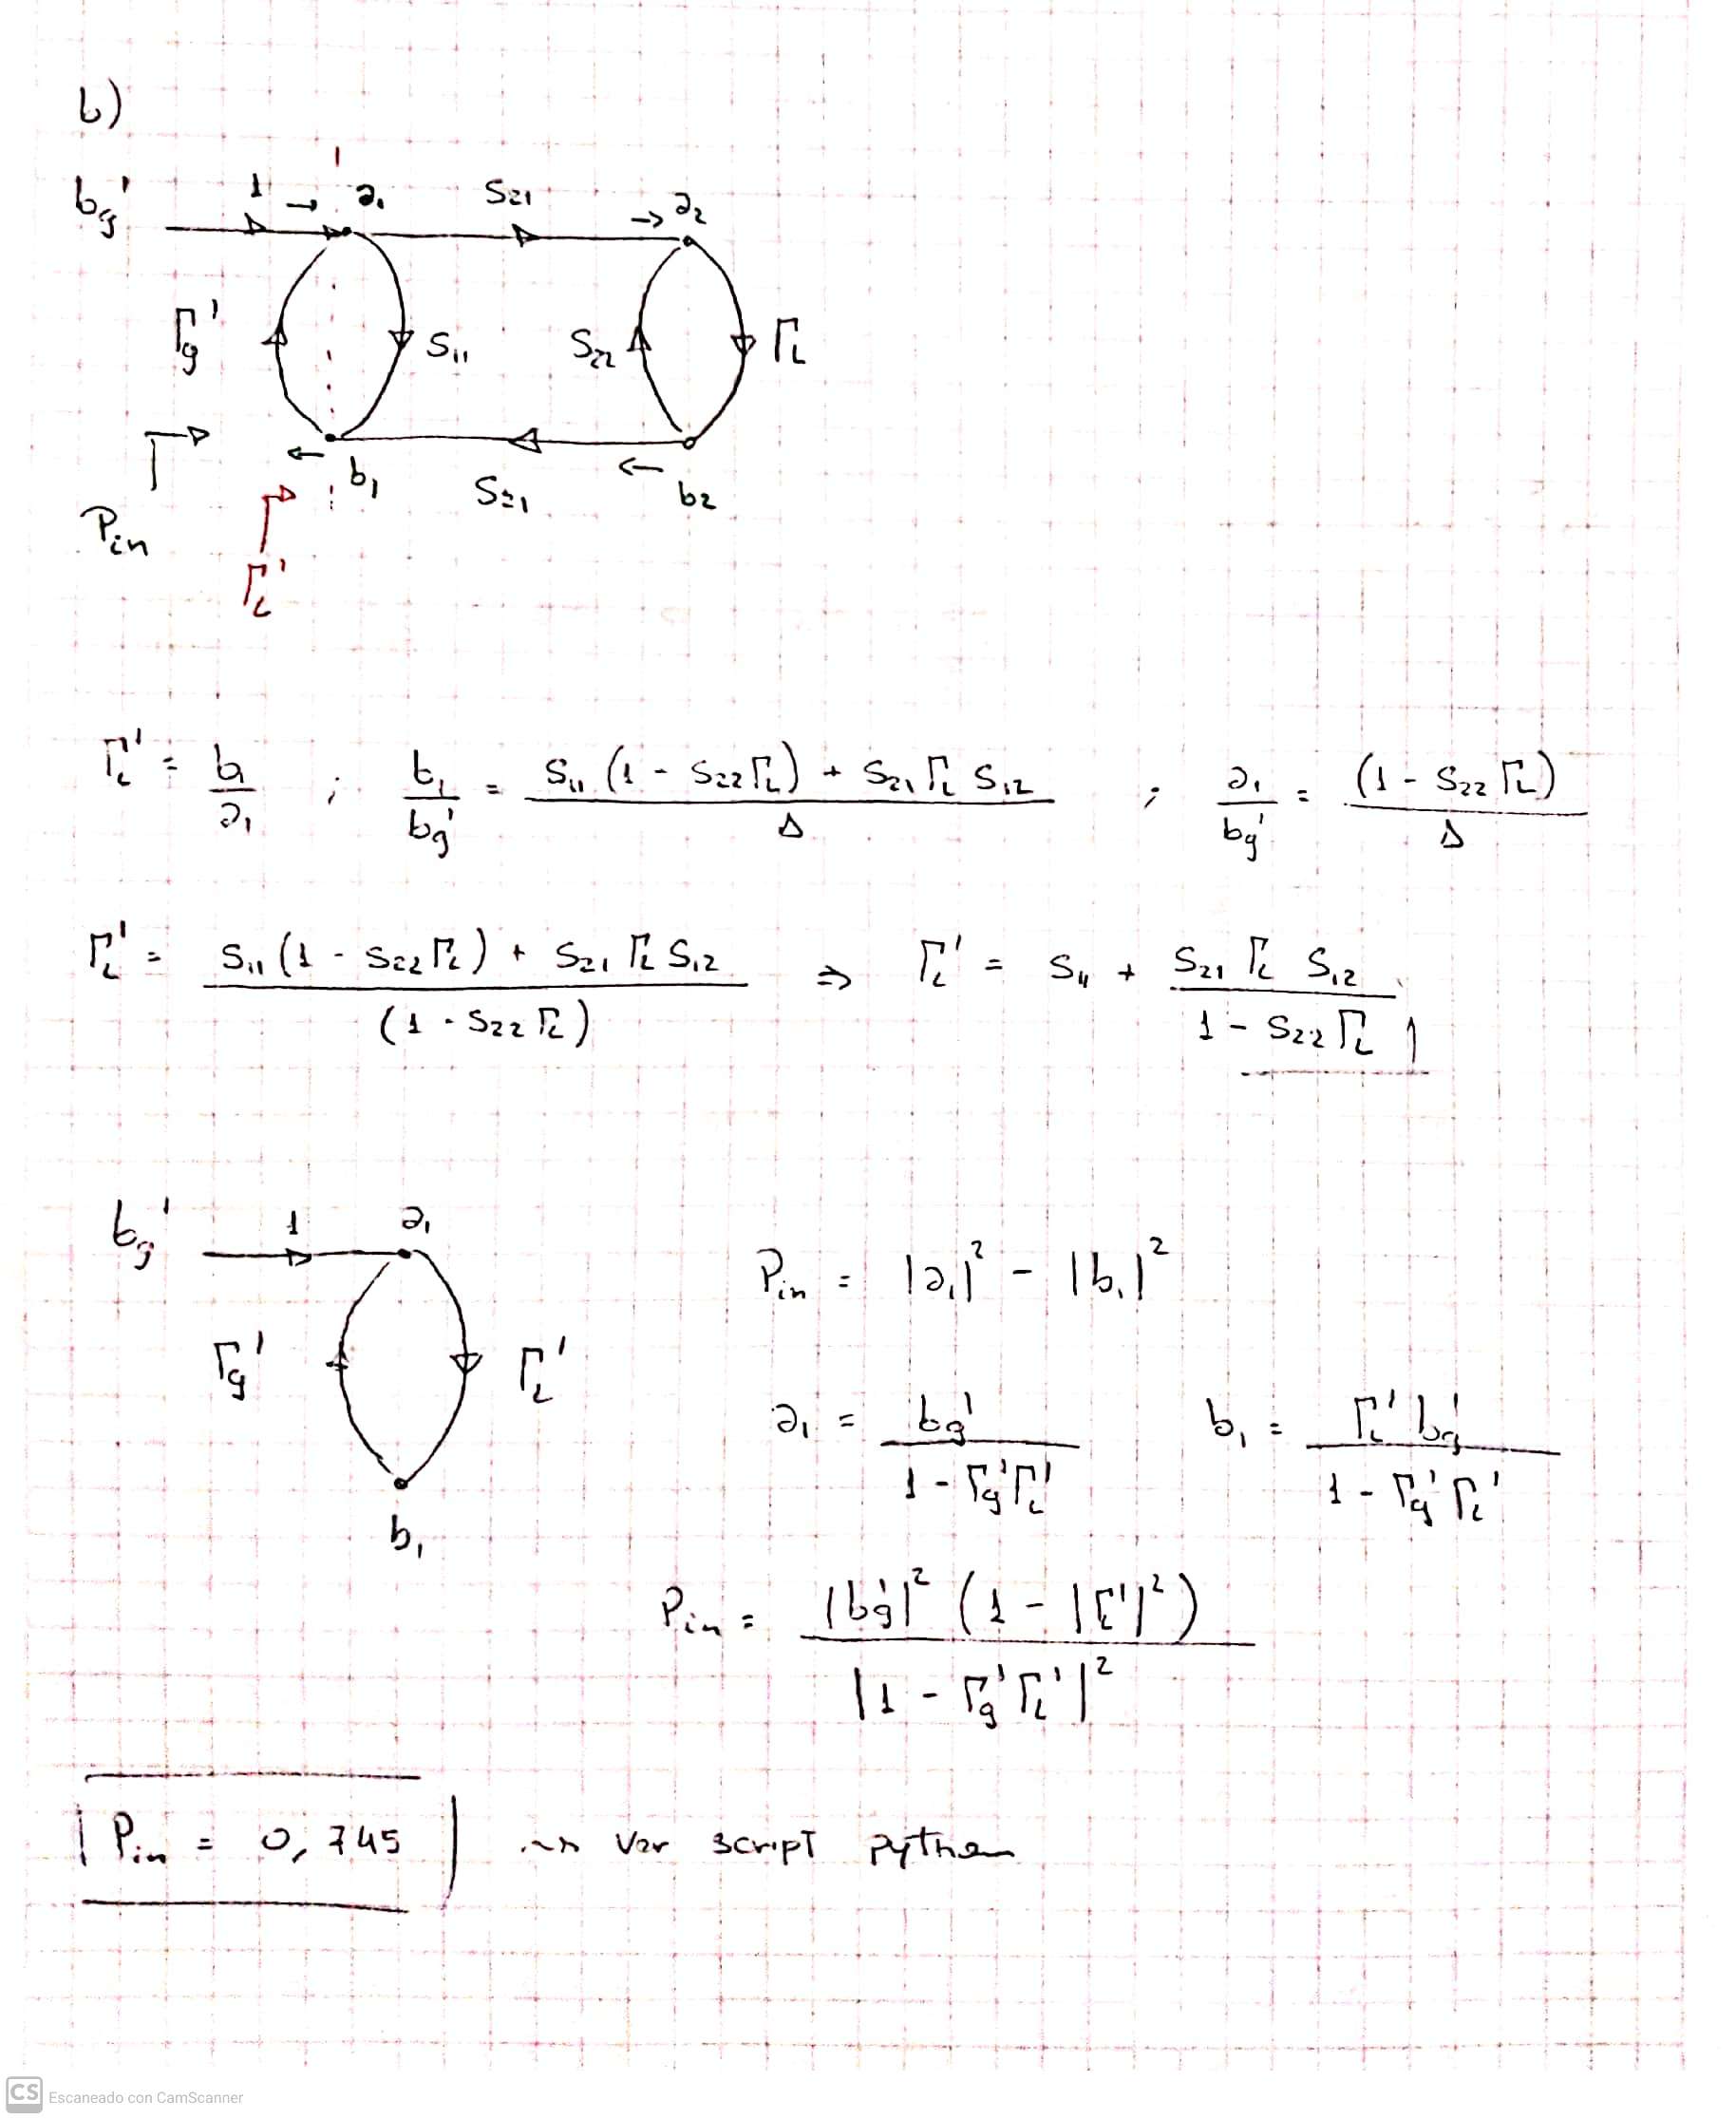 b)
bg' 1 → a₁ S21 → a₂
Γg' S11 S22 ΓL
← b₁ S21 ← b2
Pin
ΓL'
ΓL' = b₁/a₁ ; b₁/bg' = (S11 (1 - S22 ΓL) + S21 ΓL S12)/Δ ; a₁/bg' = (1 - S22 ΓL)/Δ
ΓL' = (S11 (1 - S22 ΓL) + S21 ΓL S12)/(1 - S22 ΓL) ⇒ ΓL' = S11 + (S21 ΓL S12)/(1 - S22 ΓL)
bg' 1 a₁
Pin = |a₁|² - |b₁|²
Γg' ΓL'
a₁ = bg'/(1 - Γg' ΓL') b₁ = ΓL' bg'/(1 - Γg' ΓL')
b₁
Pin = |bg'|² (1 - |ΓL'|²)/|1 - Γg' ΓL'|²
Pin = 0,745 → Ver script python
CS Escaneado con CamScanner